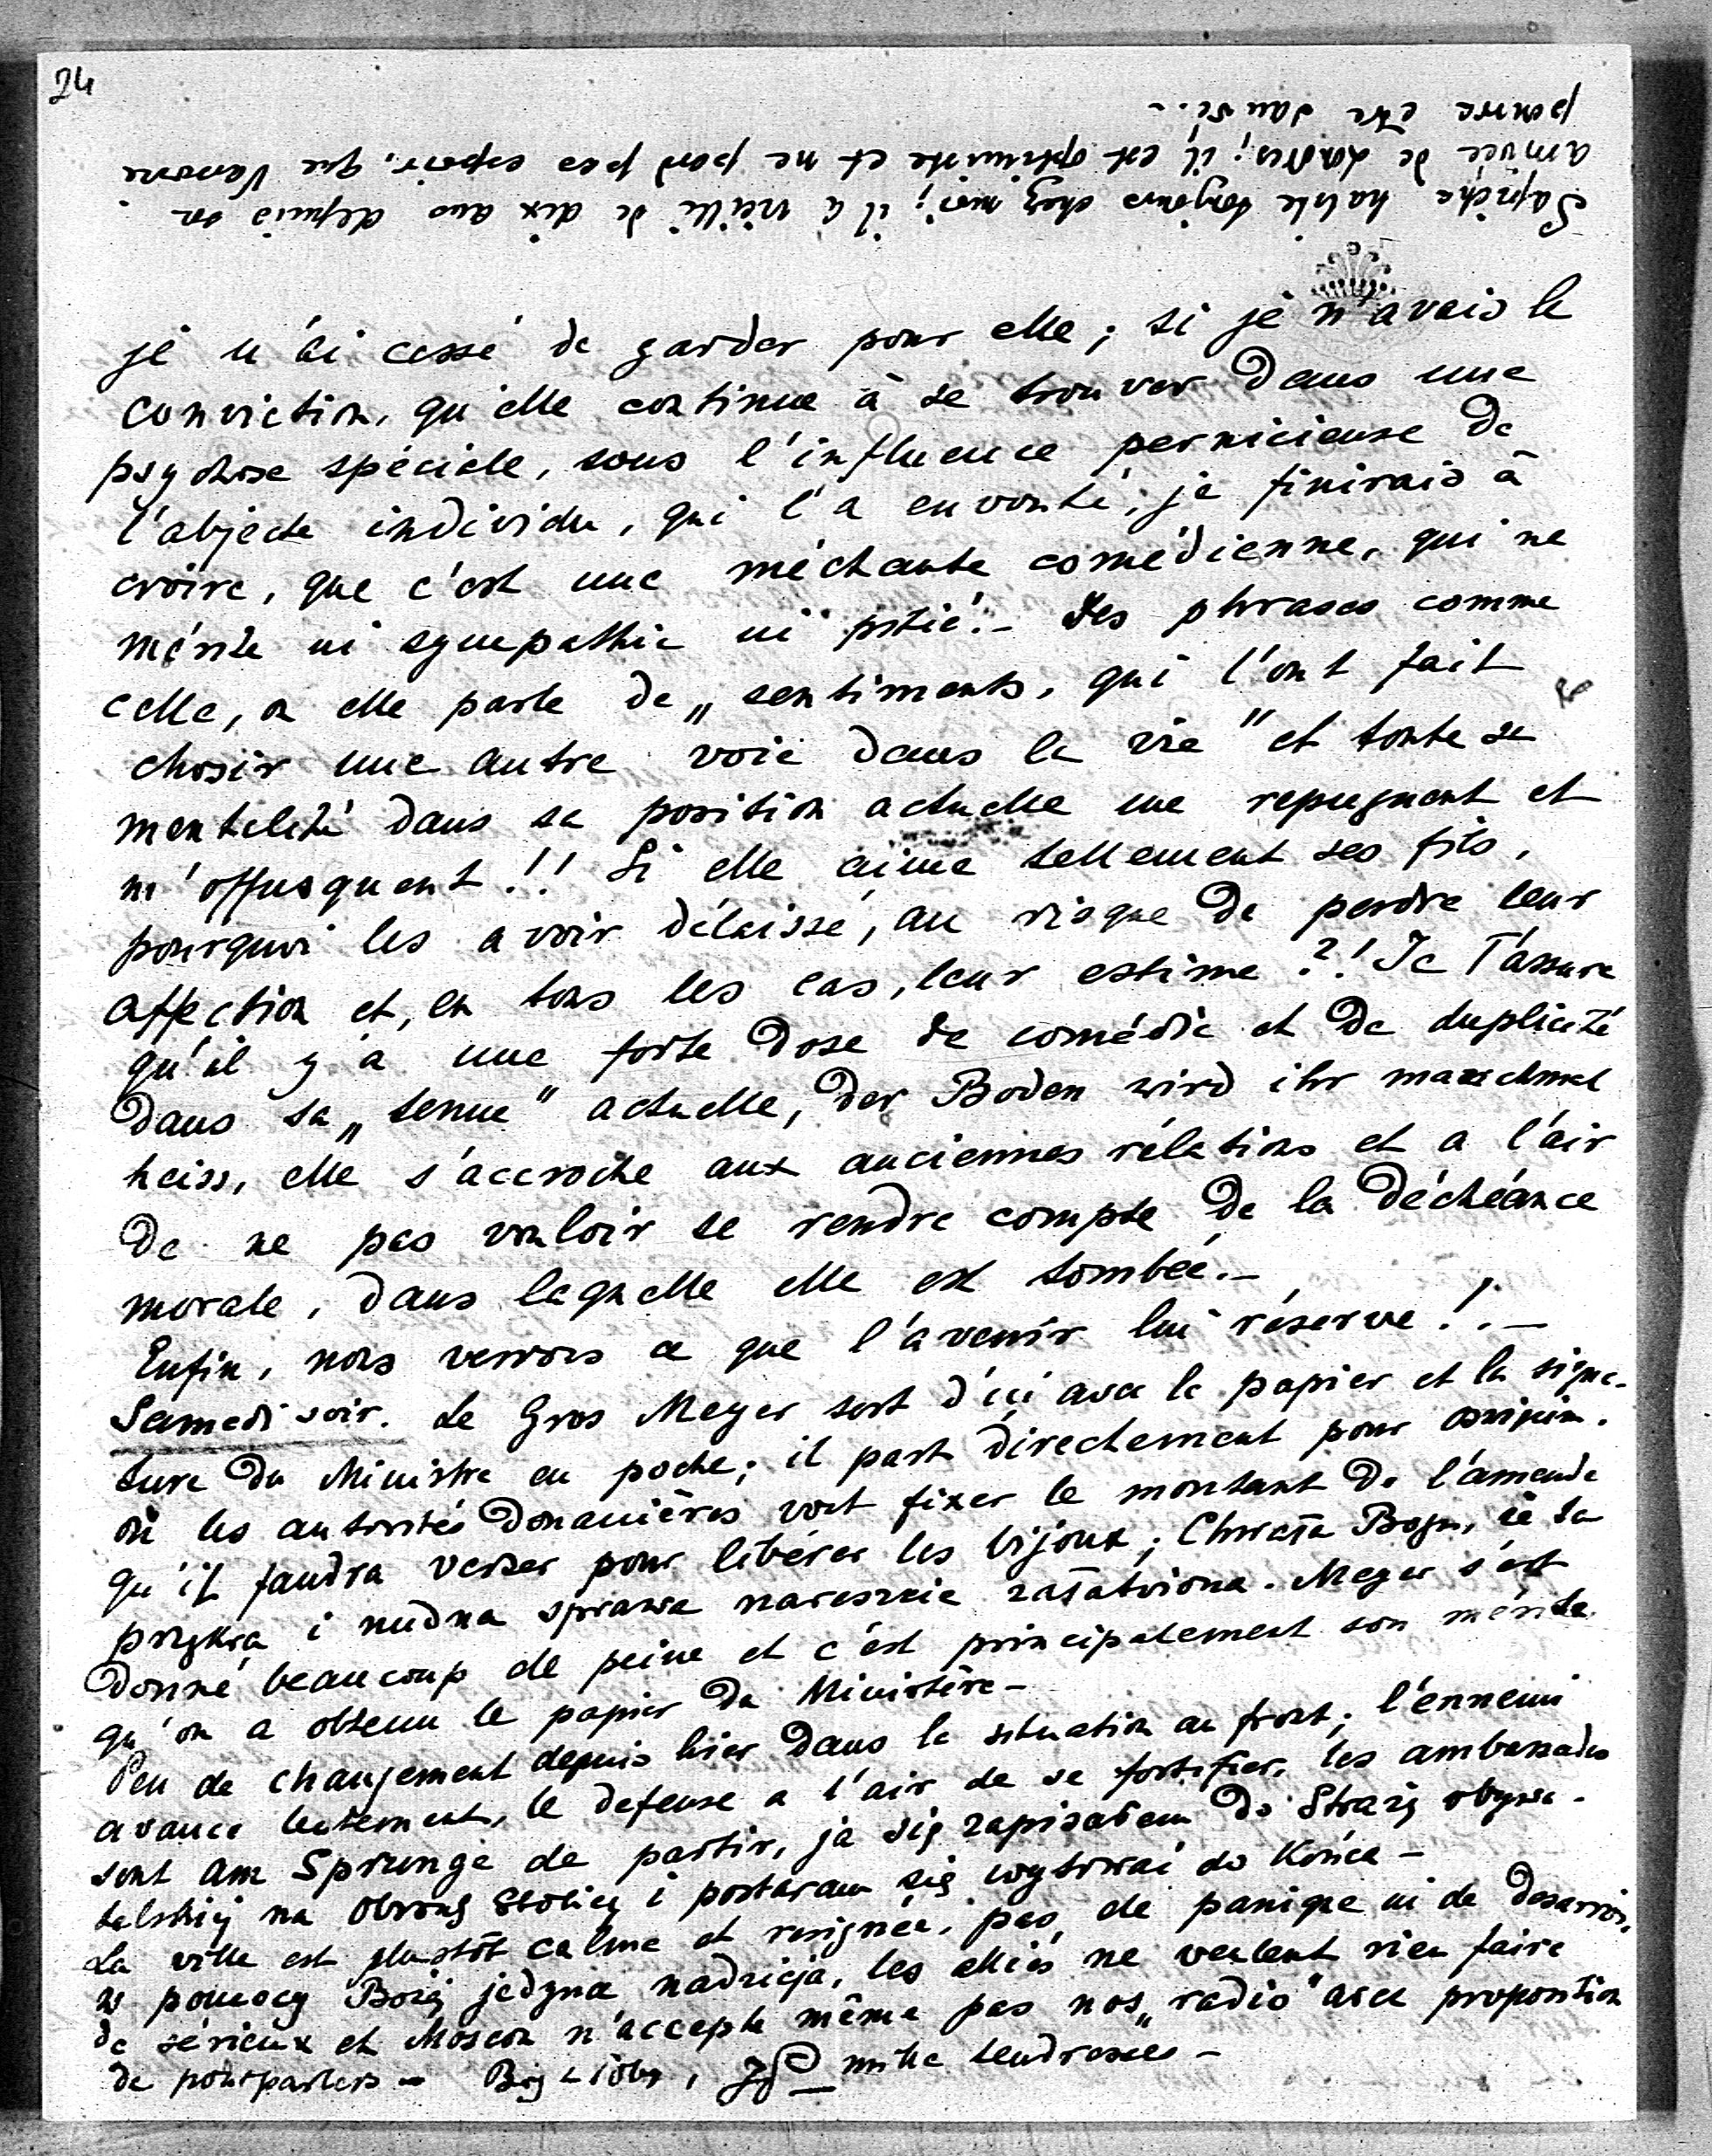 24
Sapieha habite toujours chez moi; il a vieilli de dix ans depuis son
arrivée de Londres; il est optimiste et ne perd pas espoir, que Varsovie
pourra être sauvé.-
je n'ai cessé de garder pour elle; si je n'avais la
conviction, qu'elle continue à se trouver dans une
psychose spéciale, sous l'influence pernicieuse de
l'abjecte individu, qui l'a envouté, je finirais à
croire, que c'est une méchante comédienne, qui ne
mérite ni sympathie ni pitié.- Des phrases comme
celle, ou elle parle de „sentiments, qui l'ont fait
chosir une autre voie dans la vie" et toute sa
mentalité dans sa position actuelle me repugnent et
m'offusquent!! Si elle aime tellement ses fils,
pourquoi les avoir délaissé, au risque de perdre leur
affection et, en tous les cas, leur estime?! Je T'assure
qu'il y a une forte dose de comédie et de duplicité
dans sa „tenue" actuelle, der Boden wird ihr manchmal
heiss, elle s'accroche aux anciennes rélations et a l'air
de ne pas vouloir se rendre compte de la déchéance
morale, dans laquelle elle est tombée.-
Enfin, nous verrons ce que l'avenir lui réserve!.-
Samedi soir. Le Gros Meyer sort d'ici avec le papier et la signa-
ture du Ministre en poche; il part directement pour
où les autorités donanières vont fixer le montant de l'amende
qu'il faudra verser pour libérer les bijoux; Chwała Bogu, że ta
przykra i nudna sprawa nareszcie załatwiona. Meyer s'est
donné beaucoup de peine et c'est principalement son mérite
qu'on a obtenu le papier du Ministère-
Peu de changement depuis hier dans la situation au front; l'ennemi
avance lentement, le defense a l'air de se fortifier, les ambassades
sont am Sprunge de partir, ja się zapisałem do Straży obywa-
telskiej na obronę Stolicy i postaram się wytrwać do Końca -
La ville est plustôt calme et resignée, pas de panique ni de desarroi,
w pomocy Bożej jedyna nadzieja, les alliés ne veulent rien faire
de sérieux et Moscou n'accepte même pas nos „radio" avec proposition
de pourparlers - mille tendresses -